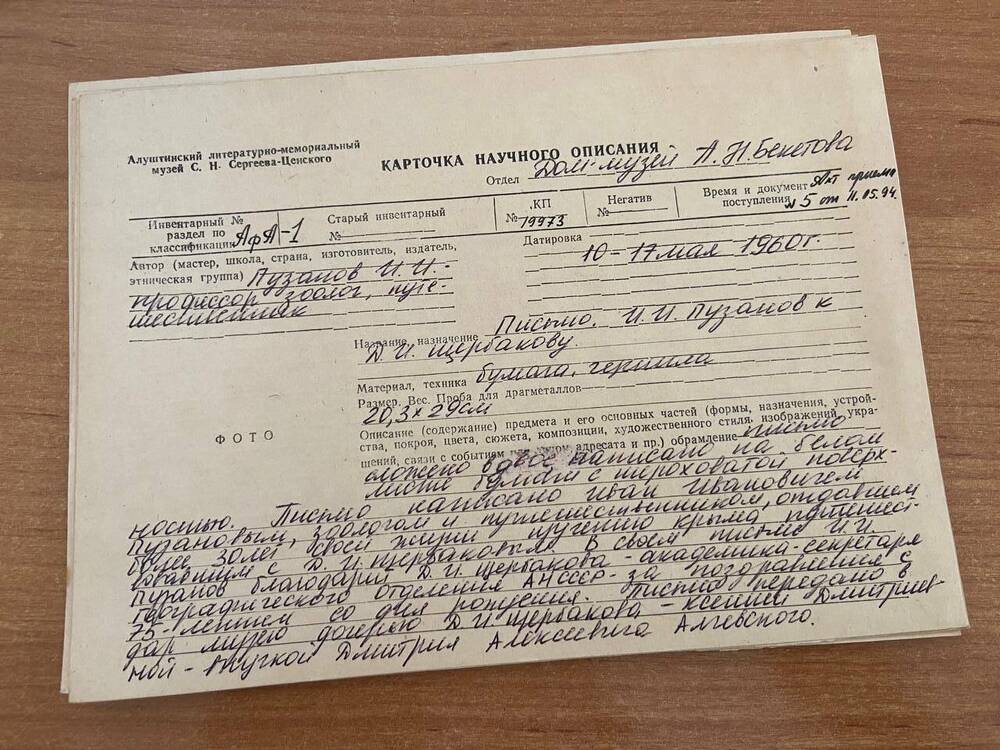 Алуштинский литературно-мемориальный
музей С. Н. Сергеева-Ценского
КАРТОЧКА НАУЧНОГО ОПИСАНИЯ
Отдел Дом-музей А.Н.Бекетова
Инвентарный №
раздел по
классификации АфА-1
Старый инвентарный
№
КП
№ 19973
Негатив
№
Время и документ Акт приема
поступления №5 от 11.05.94.
Автор (мастер, школа, страна, изготовитель, издатель,
этническая группа) Пузанов И.И.-
профессор зоолог, путе-
шественник
Датировка
10-17 мая 1960г.
Название, назначение Письмо. И.И.Пузанов к
Д.И. Щербакову.
Материал, техника бумага, чернила
Размер. Вес. Проба для драгметаллов
20,3 х 29см
ФОТО
Описание (содержание) предмета и его основных частей (формы, назначения, устрой-
ства, покроя, цвета, сюжета, композиции, художественного стиля, изображений, укра-
шений, связи с событием адресата и пр.) обрамление письмо
сложено вдвое написано на белом
листе бумаги с шероховатой поверх-
ностью. Письмо написано Иван Ивановичем
Пузановым, зоологом и путешественником, отдавшем
более 30лет своей жизни изучению Крыма, путешест-
вовавшим с Д.И.Щербаковым. В своем письме И.И.
Пузанов благодарит Д.И.Щербакова - академика-секретаря
географического отделения АНСССР за поздравления с
75-летием со дня рождения. Письмо передано в
дар музею дочерью Д.И Щербакова - Ксенией Дмитриев-
ной - внучкой Дмитрия Алексеевича Алчевского.